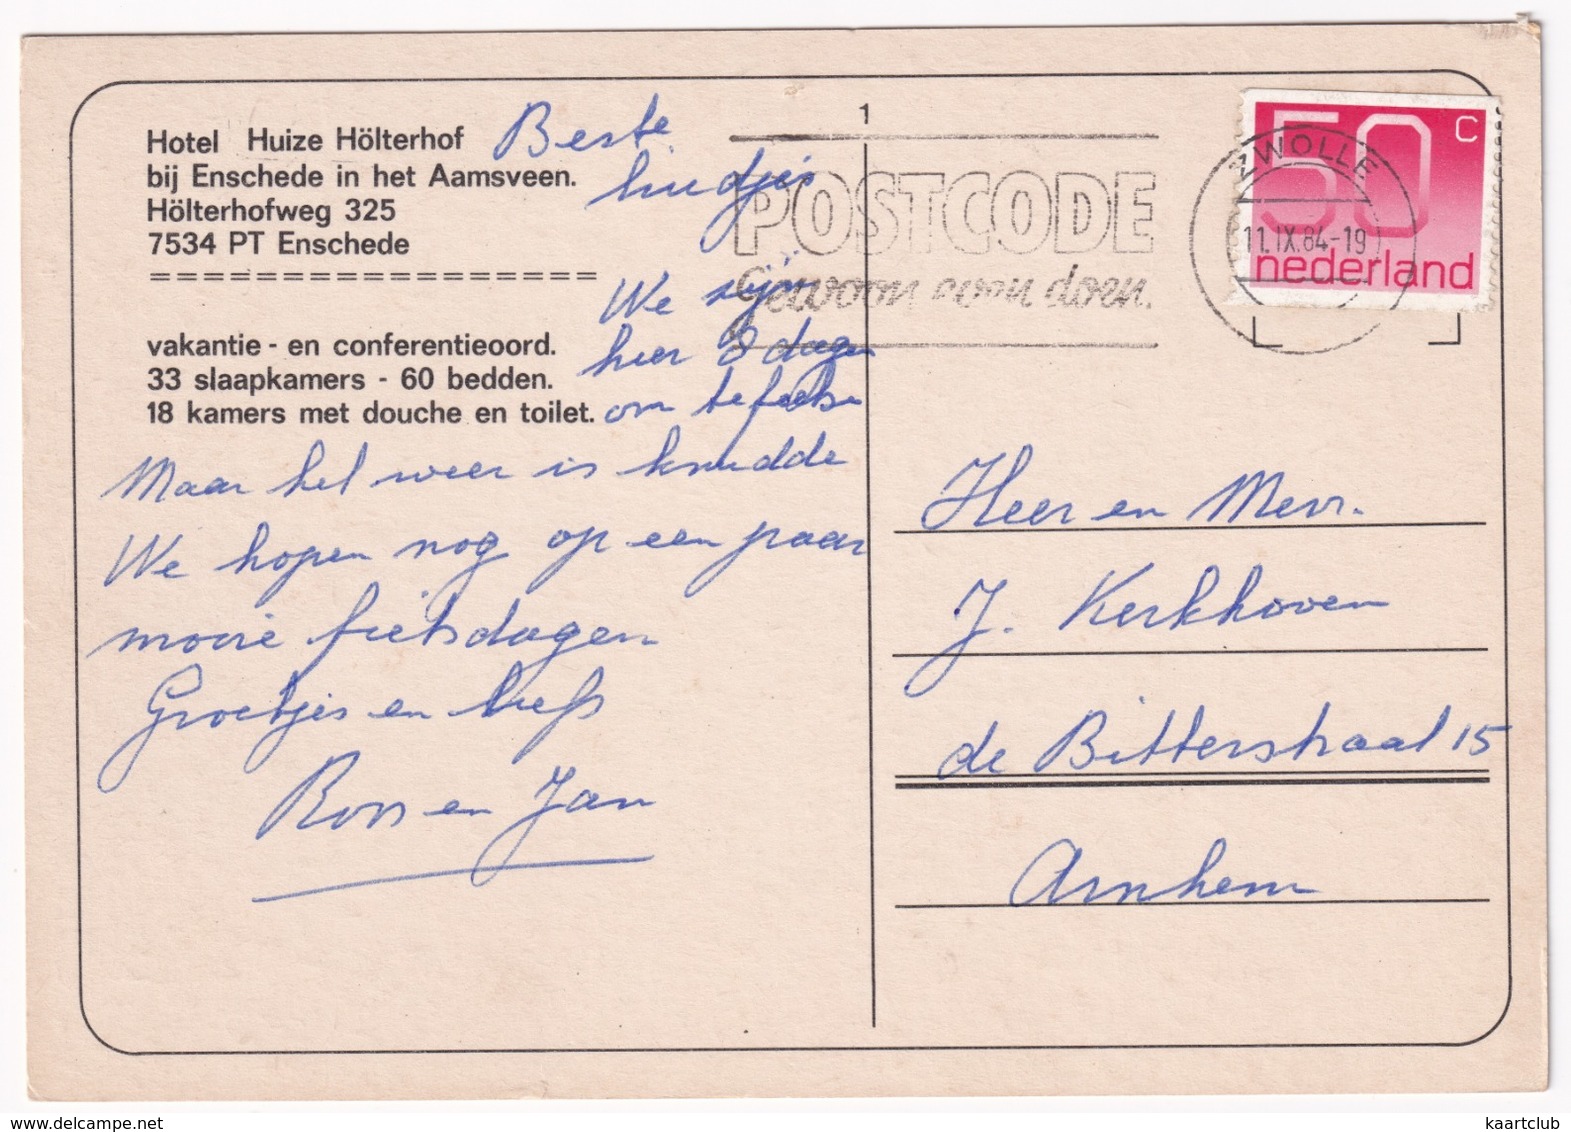 Hotel Huize Hölterhof
bij Enschede in het Aamsveen.
Hölterhofweg 325
7534 PT Enschede
===================
vakantie - en conferentieoord.
33 slaapkamers - 60 bedden.
18 kamers met douche en toilet.
Beste
luidjes
We zijn
hier 8 dagen
om te fietsen
Maar het weer is knudde
We hopen nog op een paar
mooie fietsdagen
Groetjes en liefs
en Jan
1
POSTCODE
Gewoon even doen.
ZWOLLE
11.IX.84-19
50 c
nederland
Heer en Mevr.
J. Kerkhoven
de Bitterstraat 15
Arnhem
www.delcampe.net
kaartclub